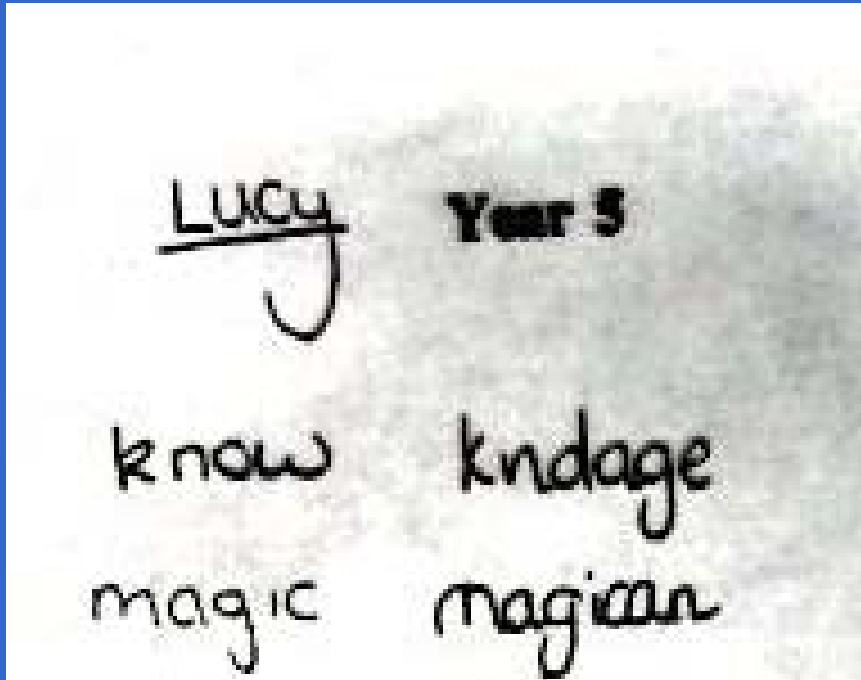 Lucy Year 5
know kndage
magic magican